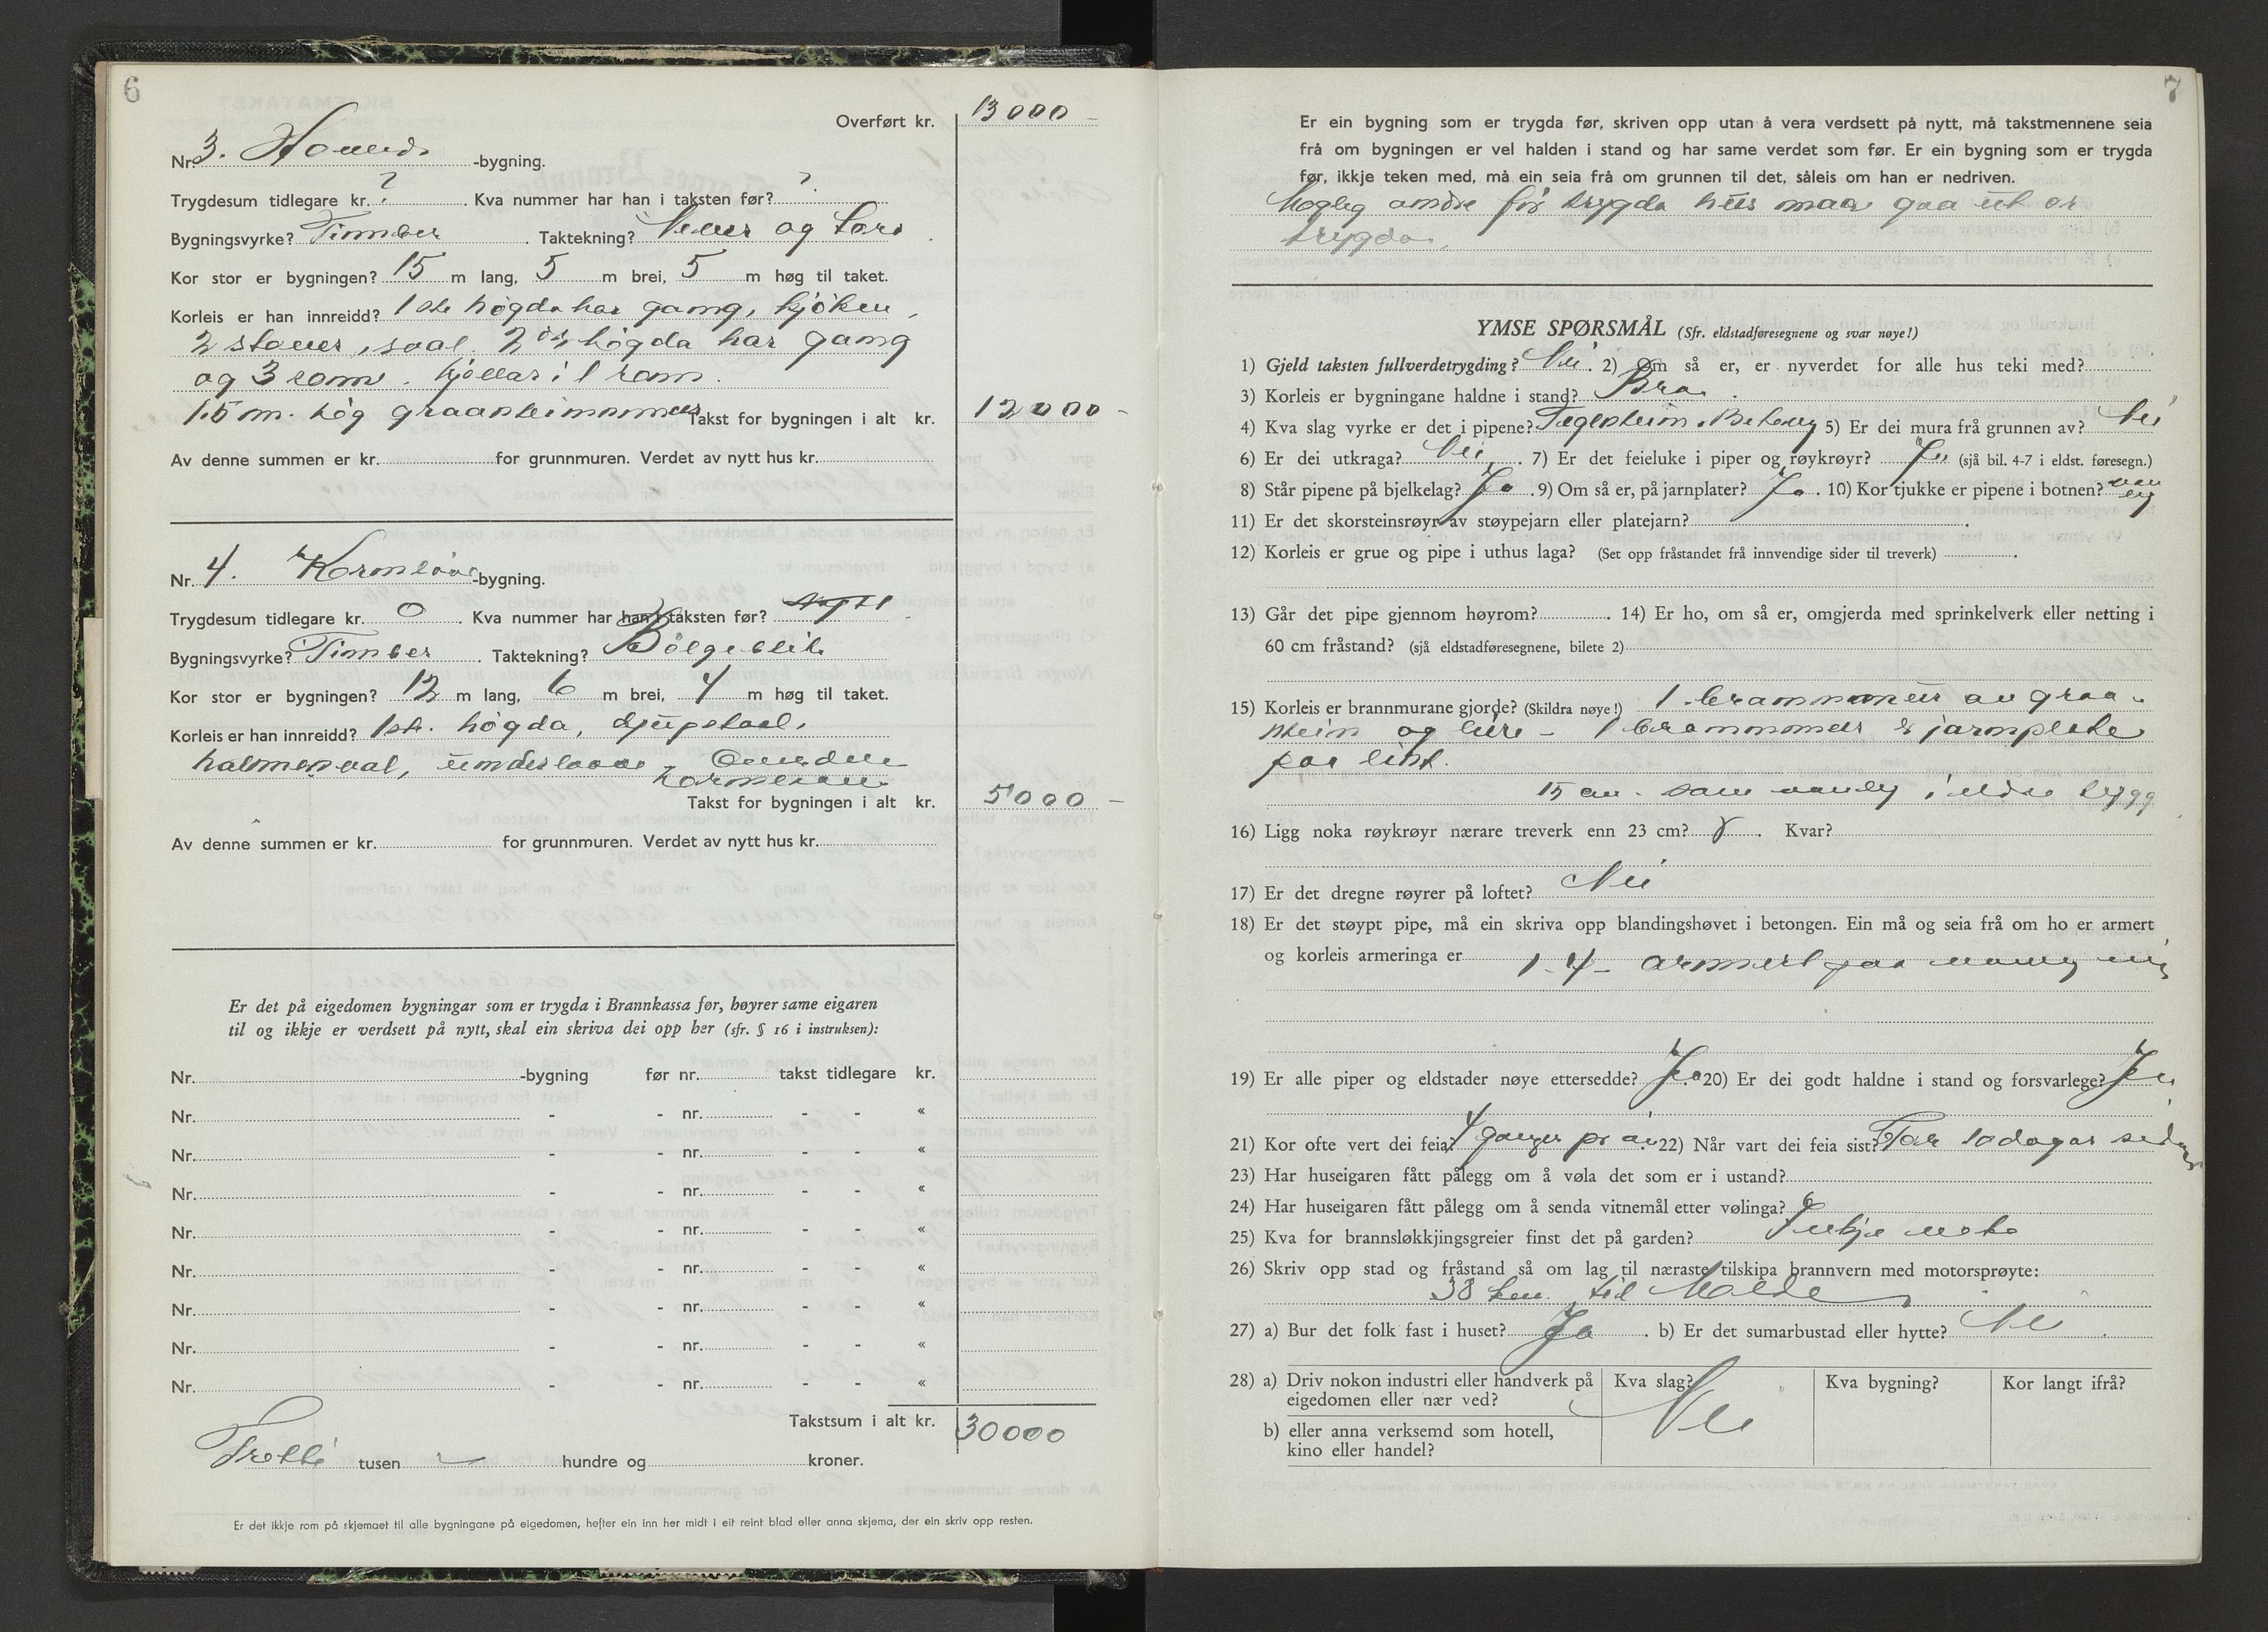 6
Overført kr. 13000 -
Nr. 3. Hovuds -bygning.
Trygdesum tidlegare kr. ? . Kva nummer har han i taksten før? ?
Bygningsvyrke? Timber . Taktekning? Never og torv .
Kor stor er bygningen? 15 m lang, 5 m brei, 5 m høg til taket.
Korleis er han innreidd? 1ste høgda har gang, kjøken,
2 stover, sval. 2dre høgda har gang
og 3 rom. Kjellar i 1 rom.
1.5 m. høg graasteinsmur Takst for bygningen i alt kr. 12000 -
Av denne summen er kr. for grunnmuren. Verdet av nytt hus kr.
Nr. 4. Kornløve -bygning.
Trygdesum tidlegare kr. 0 . Kva nummer har han i taksten før? Nytt
Bygningsvyrke? Timber . Taktekning? Bølgeblik
Kor stor er bygningen? 12 m lang, 6 m brei, 4 m høg til taket.
Korleis er han innreidd? 1ste høgda, djupstaal,
halmsval, underlaave
Takst for bygningen i alt kr. 5000 -
Av denne summen er kr. for grunnmuren. Verdet av nytt hus kr.
Er det på eigedomen bygningar som er trygda i Brannkassa før, høyrer same eigaren
til og ikkje er verdsett på nytt, skal ein skriva dei opp her (sfr. § 16 i instruksen):
Nr. -bygning før nr. takst tidlegare kr.
Nr. - - nr. - - «
Nr. - - nr. - - «
Nr. - - nr. - - «
Nr. - - nr. - - «
Nr. - - nr. - - «
Nr. - - nr. - - «
Nr. - - nr. - - «
Nr. - - nr. - - «
Takstsum i alt kr. 30000
Tretti tusen hundre og kroner.
Er det ikkje rom på skjemaet til alle bygningane på eigedomen, hefter ein inn her midt i eit reint blad eller anna skjema, der ein skriv opp resten.
7
Er ein bygning som er trygda før, skriven opp utan å vera verdsett på nytt, må takstmennene seia
frå om bygningen er vel halden i stand og har same verdet som før. Er ein bygning som er trygda
før, ikkje teken med, må ein seia frå om grunnen til det, såleis om han er nedriven.
Mogleg andre før trygda hus maa gaa ut or
trygda.
YMSE SPØRSMÅL (Sfr. eldstadføresegnene og svar nøye!)
1) Gjeld taksten fullverdetrygding? Nei . 2) Om så er, er nyverdet for alle hus teki med?
3) Korleis er bygningane haldne i stand? Bra .
4) Kva slag vyrke er det i pipene? Tegelstein. Betong 5) Er dei mura frå grunnen av? Nei
6) Er dei utkraga? Nei . 7) Er det feieluke i piper og røykrøyr? Ja (sjå bil. 4-7 i eldst. føresegn.)
8) Står pipene på bjelkelag? Ja . 9) Om så er, på jarnplater? Ja . 10) Kor tjukke er pipene i botnen? vanleg
11) Er det skorsteinsrøyr av støypejarn eller platejarn? .
12) Korleis er grue og pipe i uthus laga? (Set opp fråstandet frå innvendige sider til treverk) .
13) Går det pipe gjennom høyrom? . 14) Er ho, om så er, omgjerda med sprinkelverk eller netting i
60 cm fråstand? (sjå eldstadføresegnene, bilete 2)
15) Korleis er brannmurane gjorde? (Skildra nøye!) 1 brannmur av graa-
stein og leire - 1 brannmur er jarnplate
paa list.
15 cm. som vanleg i eldre bygg
16) Ligg noka røykrøyr nærare treverk enn 23 cm? . Kvar?
17) Er det dregne røyrer på loftet? Nei
18) Er det støypt pipe, må ein skriva opp blandingshøvet i betongen. Ein må og seia frå om ho er armert
og korleis armeringa er 1-4- armert paa vanleg vis
19) Er alle piper og eldstader nøye ettersedde? Ja . 20) Er dei godt haldne i stand og forsvarlege? Ja
21) Kor ofte vert dei feia? 4 ganger pr aar . 22) Når vart dei feia sist? For 10 dagar sidan
23) Har huseigaren fått pålegg om å vøla det som er i ustand?
24) Har huseigaren fått pålegg om å senda vitnemål etter vølinga?
25) Kva for brannsløkkjingsgreier finst det på garden? Inkje
26) Skriv opp stad og fråstand så om lag til næraste tilskipa brannvern med motorsprøyte:
38 km. til Molde
27) a) Bur det folk fast i huset? Ja . b) Er det sumarbustad eller hytte? Nei .
28) a) Driv nokon industri eller handverk på eigedomen eller nær ved? Kva slag? Kva bygning? Kor langt ifrå?
b) eller anna verksemd som hotell, kino eller handel? Nei